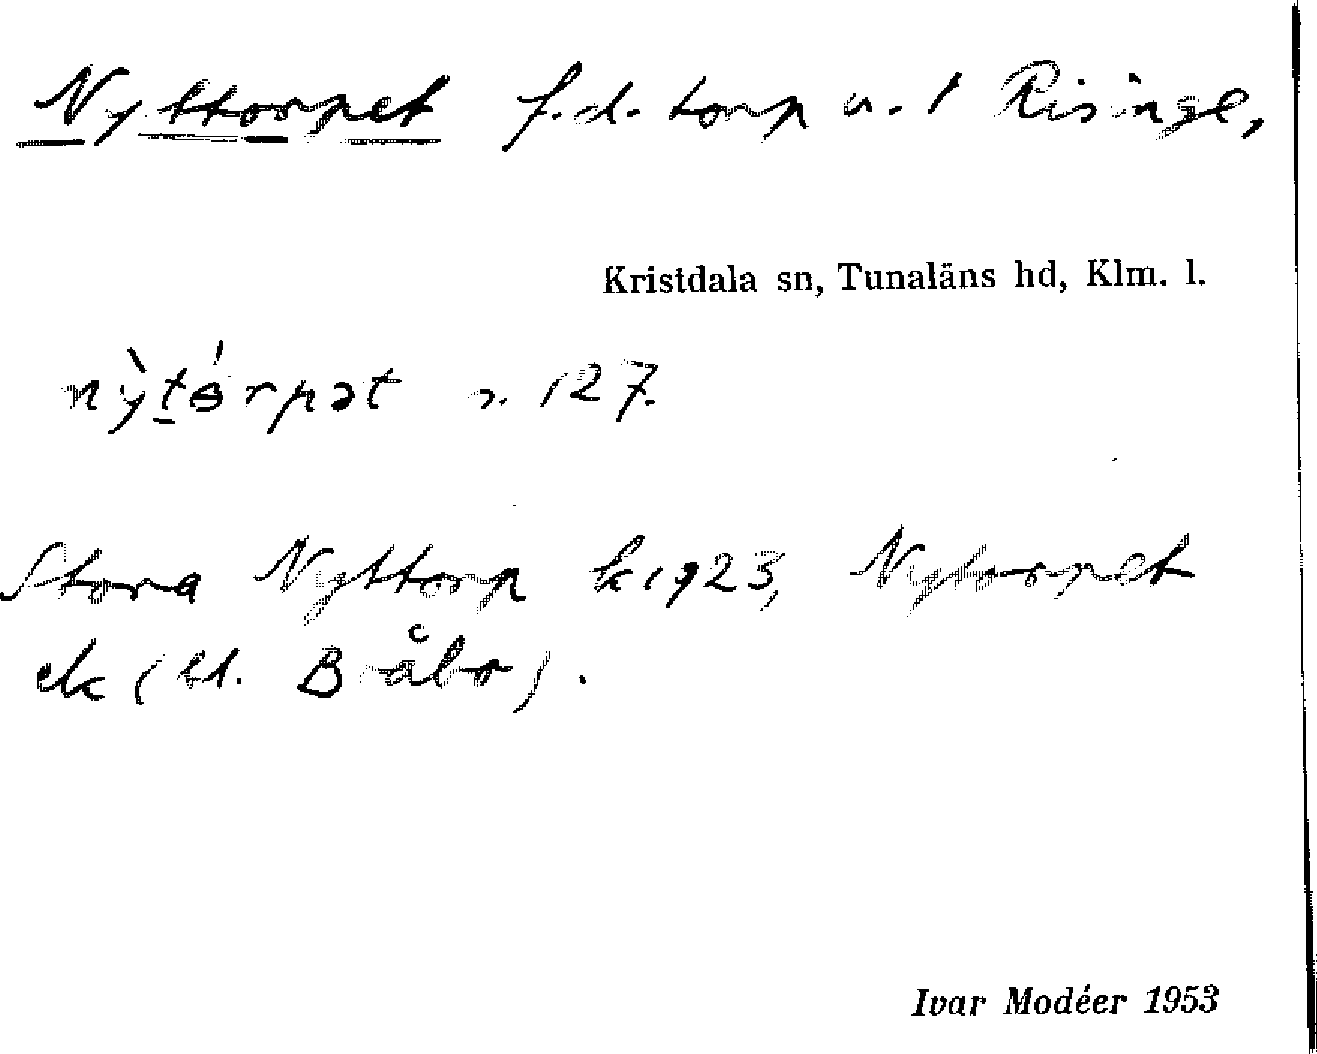 Nyttorpet f.d. torp u. 1 Risinge,
Kristdala sn, Tunaläns hd, Klm. l.
nỳtórpət 127.
Stora Nyttorp k 1923, Nytorpet
ek (bl. Bråbo).
Ivar Modéer 1953